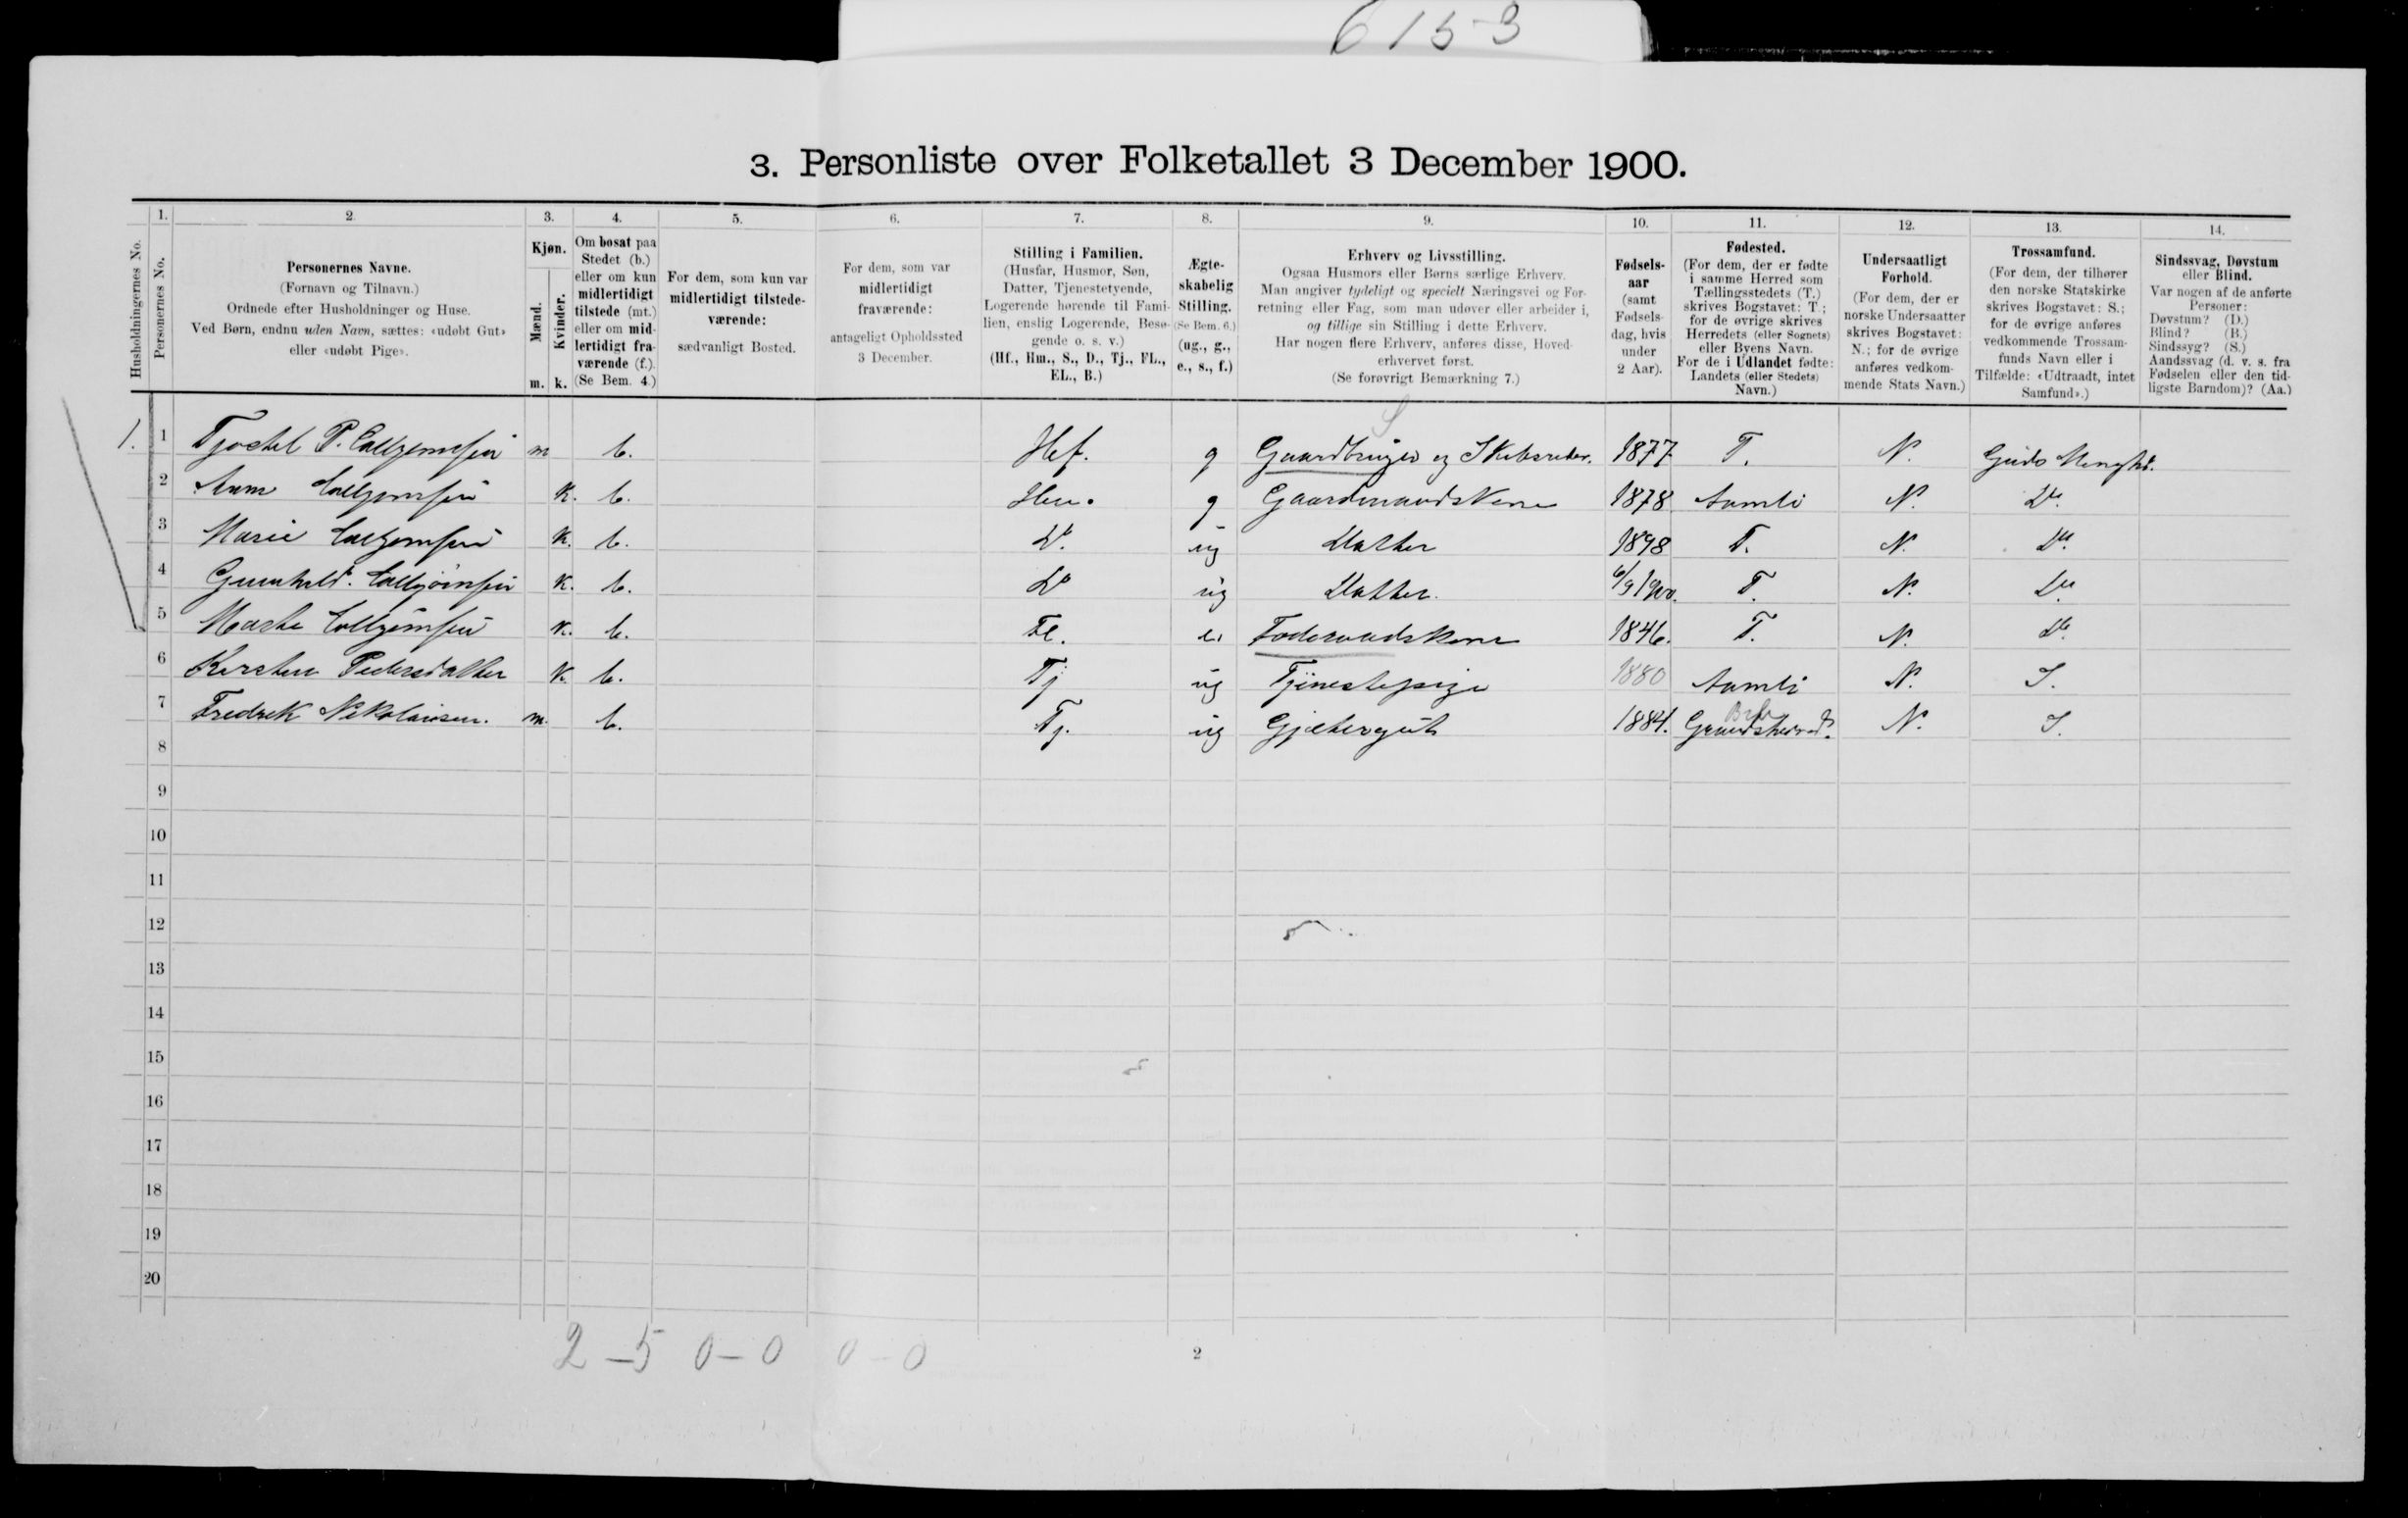 6153
3. Personliste over Folketallet 3 December 1900.
Husholdningernes No.
1.
Personernes No.
2.
Personernes Navne.
(Fornavn og Tilnavn.)
Ordnede efter Husholdninger og Huse.
Ved Børn, endnu uden Navn, sættes: «udøbt Gut»
eller «udøbt Pige».
3.
Kjøn.
Mænd.
Kvinder.
m. k.
4.
Om bosat paa
Stedet (b.)
eller om kun
midlertidigt
tilstede (mt.)
eller om mid-
lertidigt fra-
værende (f.).
(Se Bem. 4.)
5.
For dem, som kun var
midlertidigt tilstede-
værende:
sædvanligt Bosted.
6.
For dem, som var
midlertidigt
fraværende:
antageligt Opholdssted
3 December.
7.
Stilling i Familien.
(Husfar, Husmor, Søn,
Datter, Tjenestetyende,
Logerende hørende til Fami-
lien, enslig Logerende, Besø-
gende o. s. v.)
(Hf., Hm., S., D., Tj., FL.,
EL., B.)
8.
Ægte-
skabelig
Stilling.
(Se Bem. 6.)
(ug., g.,
e., s., f.)
9.
Erhverv og Livsstilling.
Ogsaa Husmors eller Børns særlige Erhverv.
Man angiver tydeligt og specielt Næringsvei og For-
retning eller Fag, som man udøver eller arbeider i,
og tillige sin Stilling i dette Erhverv.
Har nogen flere Erhverv, anføres disse, Hoved-
erhvervet først.
(Se forøvrigt Bemærkning 7.)
10.
Fødsels-
aar
(samt
Fødsels-
dag, hvis
under
2 Aar).
11.
Fødested.
(For dem, der er fødte
i samme Herred som
Tællingsstedets (T.)
skrives Bogstavet: T.;
for de øvrige skrives
Herredets (eller Sognets)
eller Byens Navn.
For de i Udlandet fødte:
Landets (eller Stedets)
Navn.)
12.
Undersaatligt
Forhold.
(For dem, der er
norske Undersaatter
skrives Bogstavet:
N.; for de øvrige
anføres vedkom-
mende Stats Navn.)
13.
Trossamfund.
(For dem, der tilhører
den norske Statskirke
skrives Bogstavet: S.;
for de øvrige anføres
vedkommende Trossam-
funds Navn eller i
Tilfælde: «Udtraadt, intet
Samfund».)
14.
Sindssvag, Døvstum
eller Blind.
Var nogen af de anførte
Personer:
Døvstum? (D.)
Blind? (B.)
Sindssyg? (S.)
Aandssvag (d. v. s. fra
Fødselen eller den tid-
ligste Barndom)? (Aa.)
1. 1 P. m b. Hf. g Gaardbruger og Skibsreder. 1877 T. N. Guds Menighd.
2 k. b. Hm. g Gaardmandskone 1878 Aamli N. Do.
3 Marie k. b. D. ug Datter 1898 T. N. Do.
4 Gunhild. k. b. D ug Datter. 6/9 1900. T. N. Do.
5 k. b. Fl. e. Foderaadskone 1846. T. N. Do.
6 Kirsten Pedersdatter k. b. Tj ug Tjenestepige 1880 Aamli N. S.
7 Fredrek Nikolaisen. m. b. Tj. ug Gjætergut 1884. N. S.
8
9
10
11
12
13
14
15
16
17
18
19
20
2-5 0-0 0-0
2